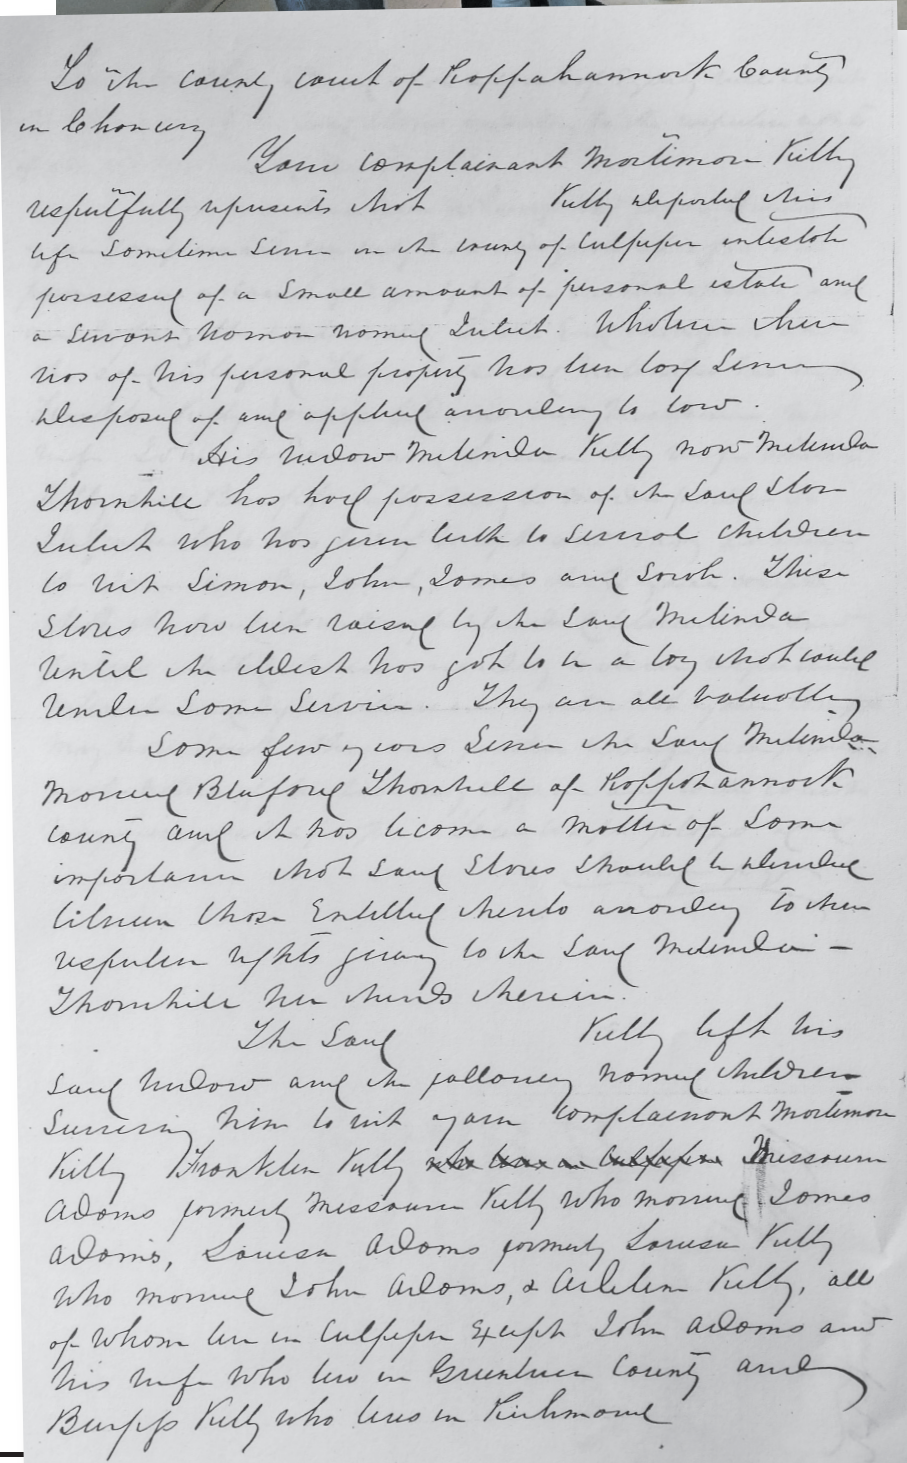 To the county court of Rappahannock County
in Chancery
Your complainant Mortimore Kilby
respectfully represents that Kilby departed this
life sometime since in the county of Culpeper intestate
possessed of a small amount of personal estate and
a servant woman named Juliet.
of his personal property has been long since
disposed of and applied according to law.
His widow Melinda Kilby now Melinda
Thornhill has had possession of the said slave
Juliet who has given birth to several children
to wit Simon, John, James and Sarah. These
slaves have been raised by the said Melinda
until the eldest has got to be a boy that could
render some service. They are all valuable
Some few years since the said Melinda
married Bluford Thornhill of Rappahannock
county and it has become a matter of some
importance that said slaves should be divided
between those entitled thereto according to their
respective rights giving to the said Melinda
Thornhill her thirds therein.
The said Kilby left his
said widow and the following named children
surviving him to wit your complainant Mortimore
Kilby Franklin Kilby who lives in Culpeper Missouri
Adams formerly Missouri Kilby who married James
Adams, Louisa Adams formerly Louisa Kilby
who married John Adams, & Kilby, all
of whom live in Culpeper except John Adams and
his wife who live in County and
Kilby who lives in Richmond